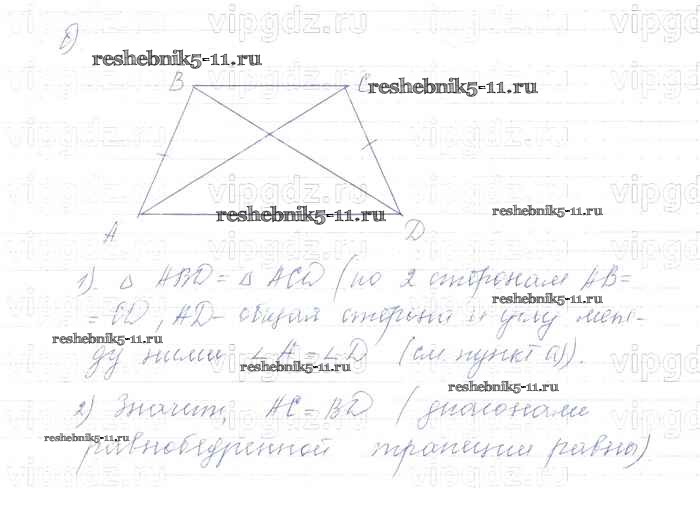 б)
reshebnik5-11.ru
B C reshebnik5-11.ru
A reshebnik5-11.ru D
reshebnik5-11.ru
1). △ ABD = △ ACD (по 2 сторонам AB =
reshebnik5-11.ru
= CD, AD - общая сторона и углу меж-
reshebnik5-11.ru
ду ними ∠A = ∠D (см. пункт а)).
reshebnik5-11.ru
reshebnik5-11.ru
2) Значит, AC = BD (диагонали
reshebnik5-11.ru
равнобедренной трапеции равны)
vipgdz.ru